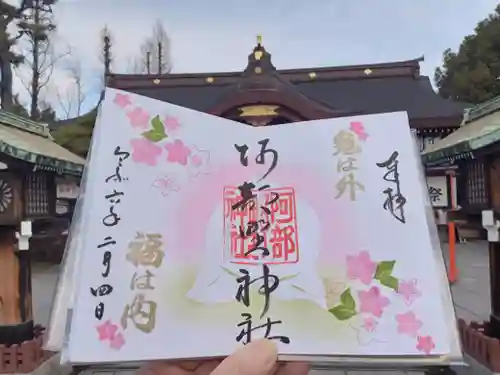 奉拝
鬼は外
阿部野神社
阿部野神社
福は内
令和六年二月四日